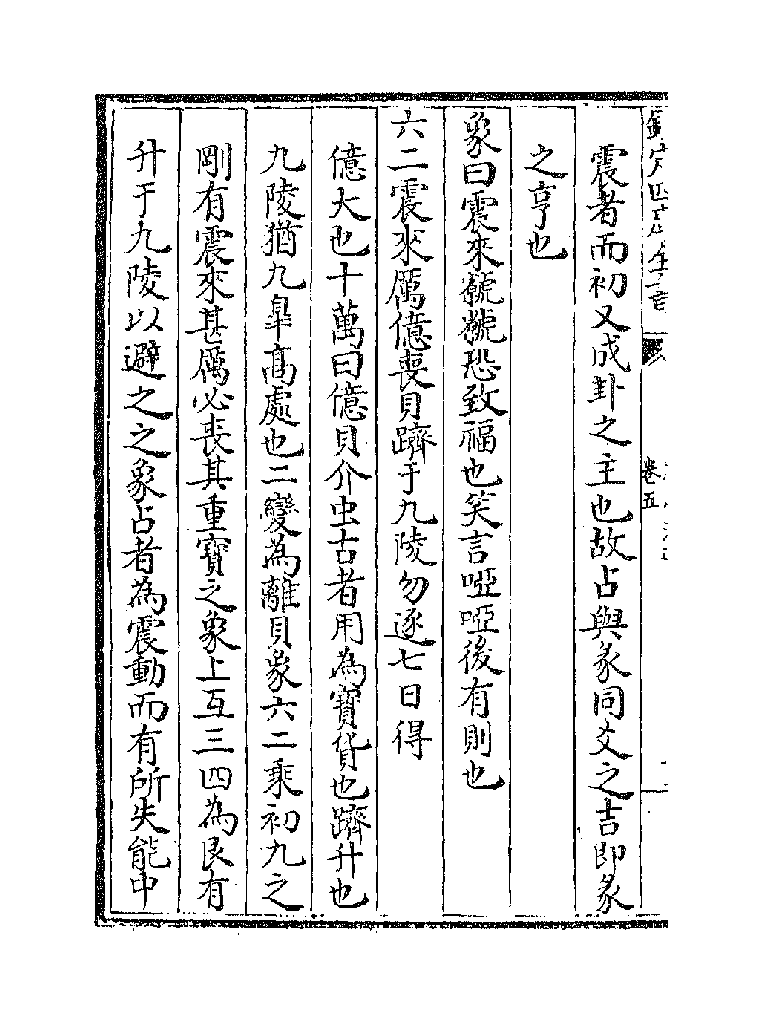 震者而初又成卦之主也故占與彖同爻之吉即彖
之亨也
象曰震來虩虩恐致福也笑言啞啞後有則也
六二震來厲億喪貝躋于九陵勿逐七日得
億大也十萬曰億貝介虫古者用為寶貨也躋升也
九陵猶九臯高處也二變為離貝象六二乘初九之
剛有震來甚厲必丧其重寶之象上互三四為艮有
升于九陵以避之之象占者為震動而有所失能中
卷五